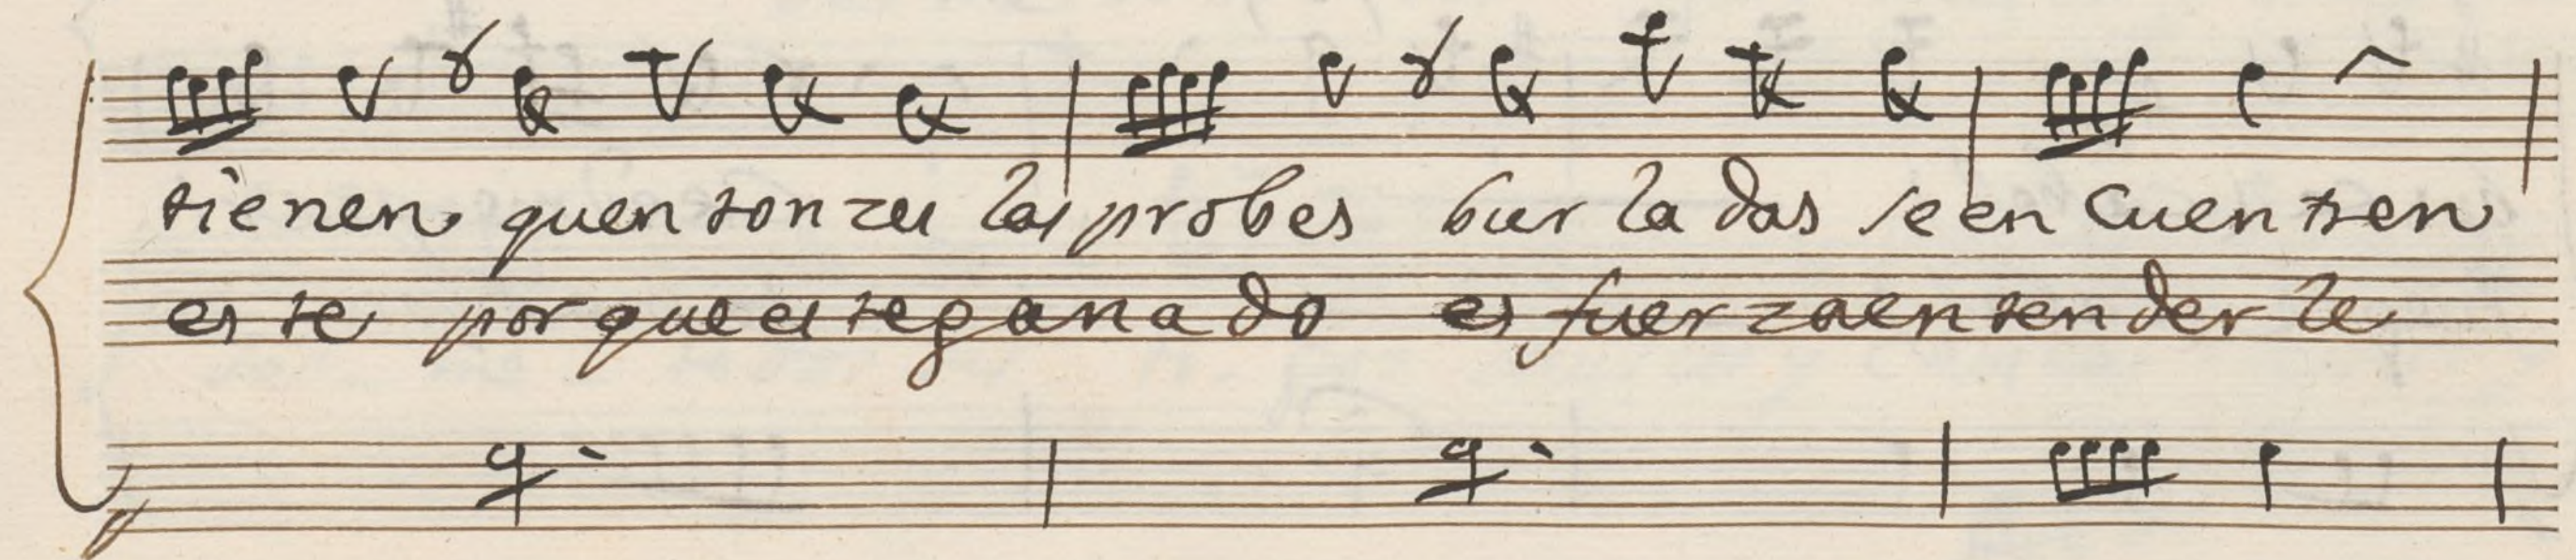 tienen quen ton zu las probes bur la das se en cuen tren
es te por que es te ga na do es fuer za en ten der le